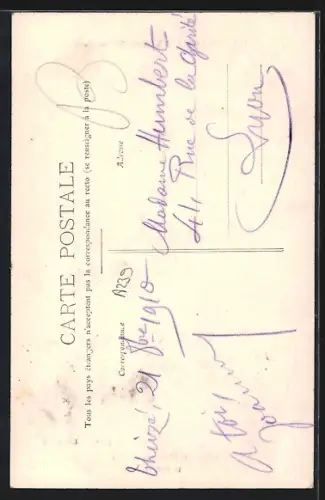 CARTE POSTALE
Tous les pays étrangers n'acceptent pas la correspondance au recto (se renseigner à la poste)
Correspondance
Adresse
A239
Theizé, 21 8bre 1910
Madame Humbert
44 Rue de la Charité
Lyon
B